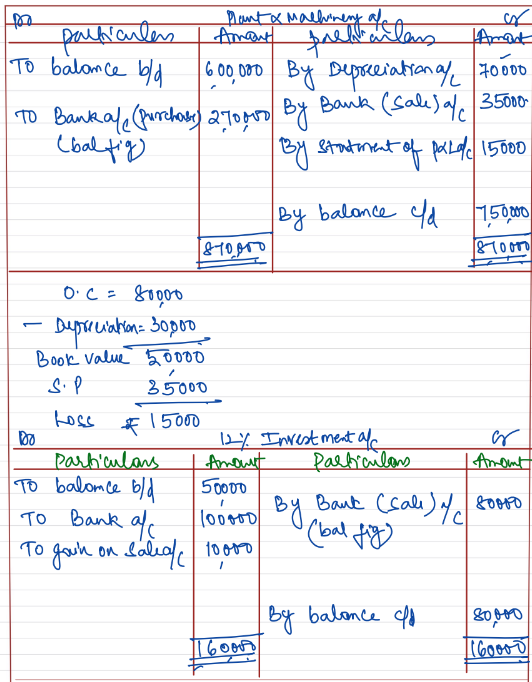 Dr Plant & Machinery a/c Cr
Particulars Amount Particulars Amount
To balance b/d 600,000 By Depreciation a/c 70000
To Bank a/c (purchase) 270000 By Bank (Sale) a/c 35000
(bal fig) By Statement of P&L a/c 15000
By balance c/d 750,000
870,000 870000
O.C = 80000
- Depreciation = 30,000
Book value 50000
S.P 35000
Loss ₹ 15000
Dr 12% Investment a/c Cr
Particulars Amount Particulars Amount
To balance b/d 50000
To Bank a/c 100000 By Bank (Sale) a/c 80000
To gain on Sale a/c 10000 (bal fig)
By balance c/d 80,000
160000 160000